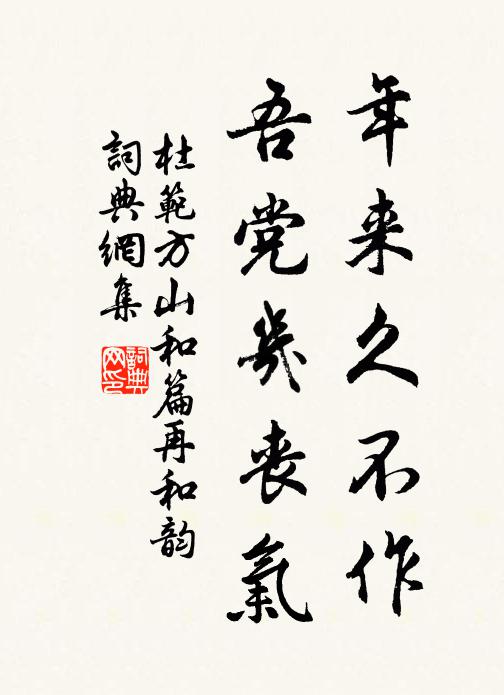 年来久不作
吾党幾喪氣
杜範方山和篇再和韵
詞典網集
詞典
网印